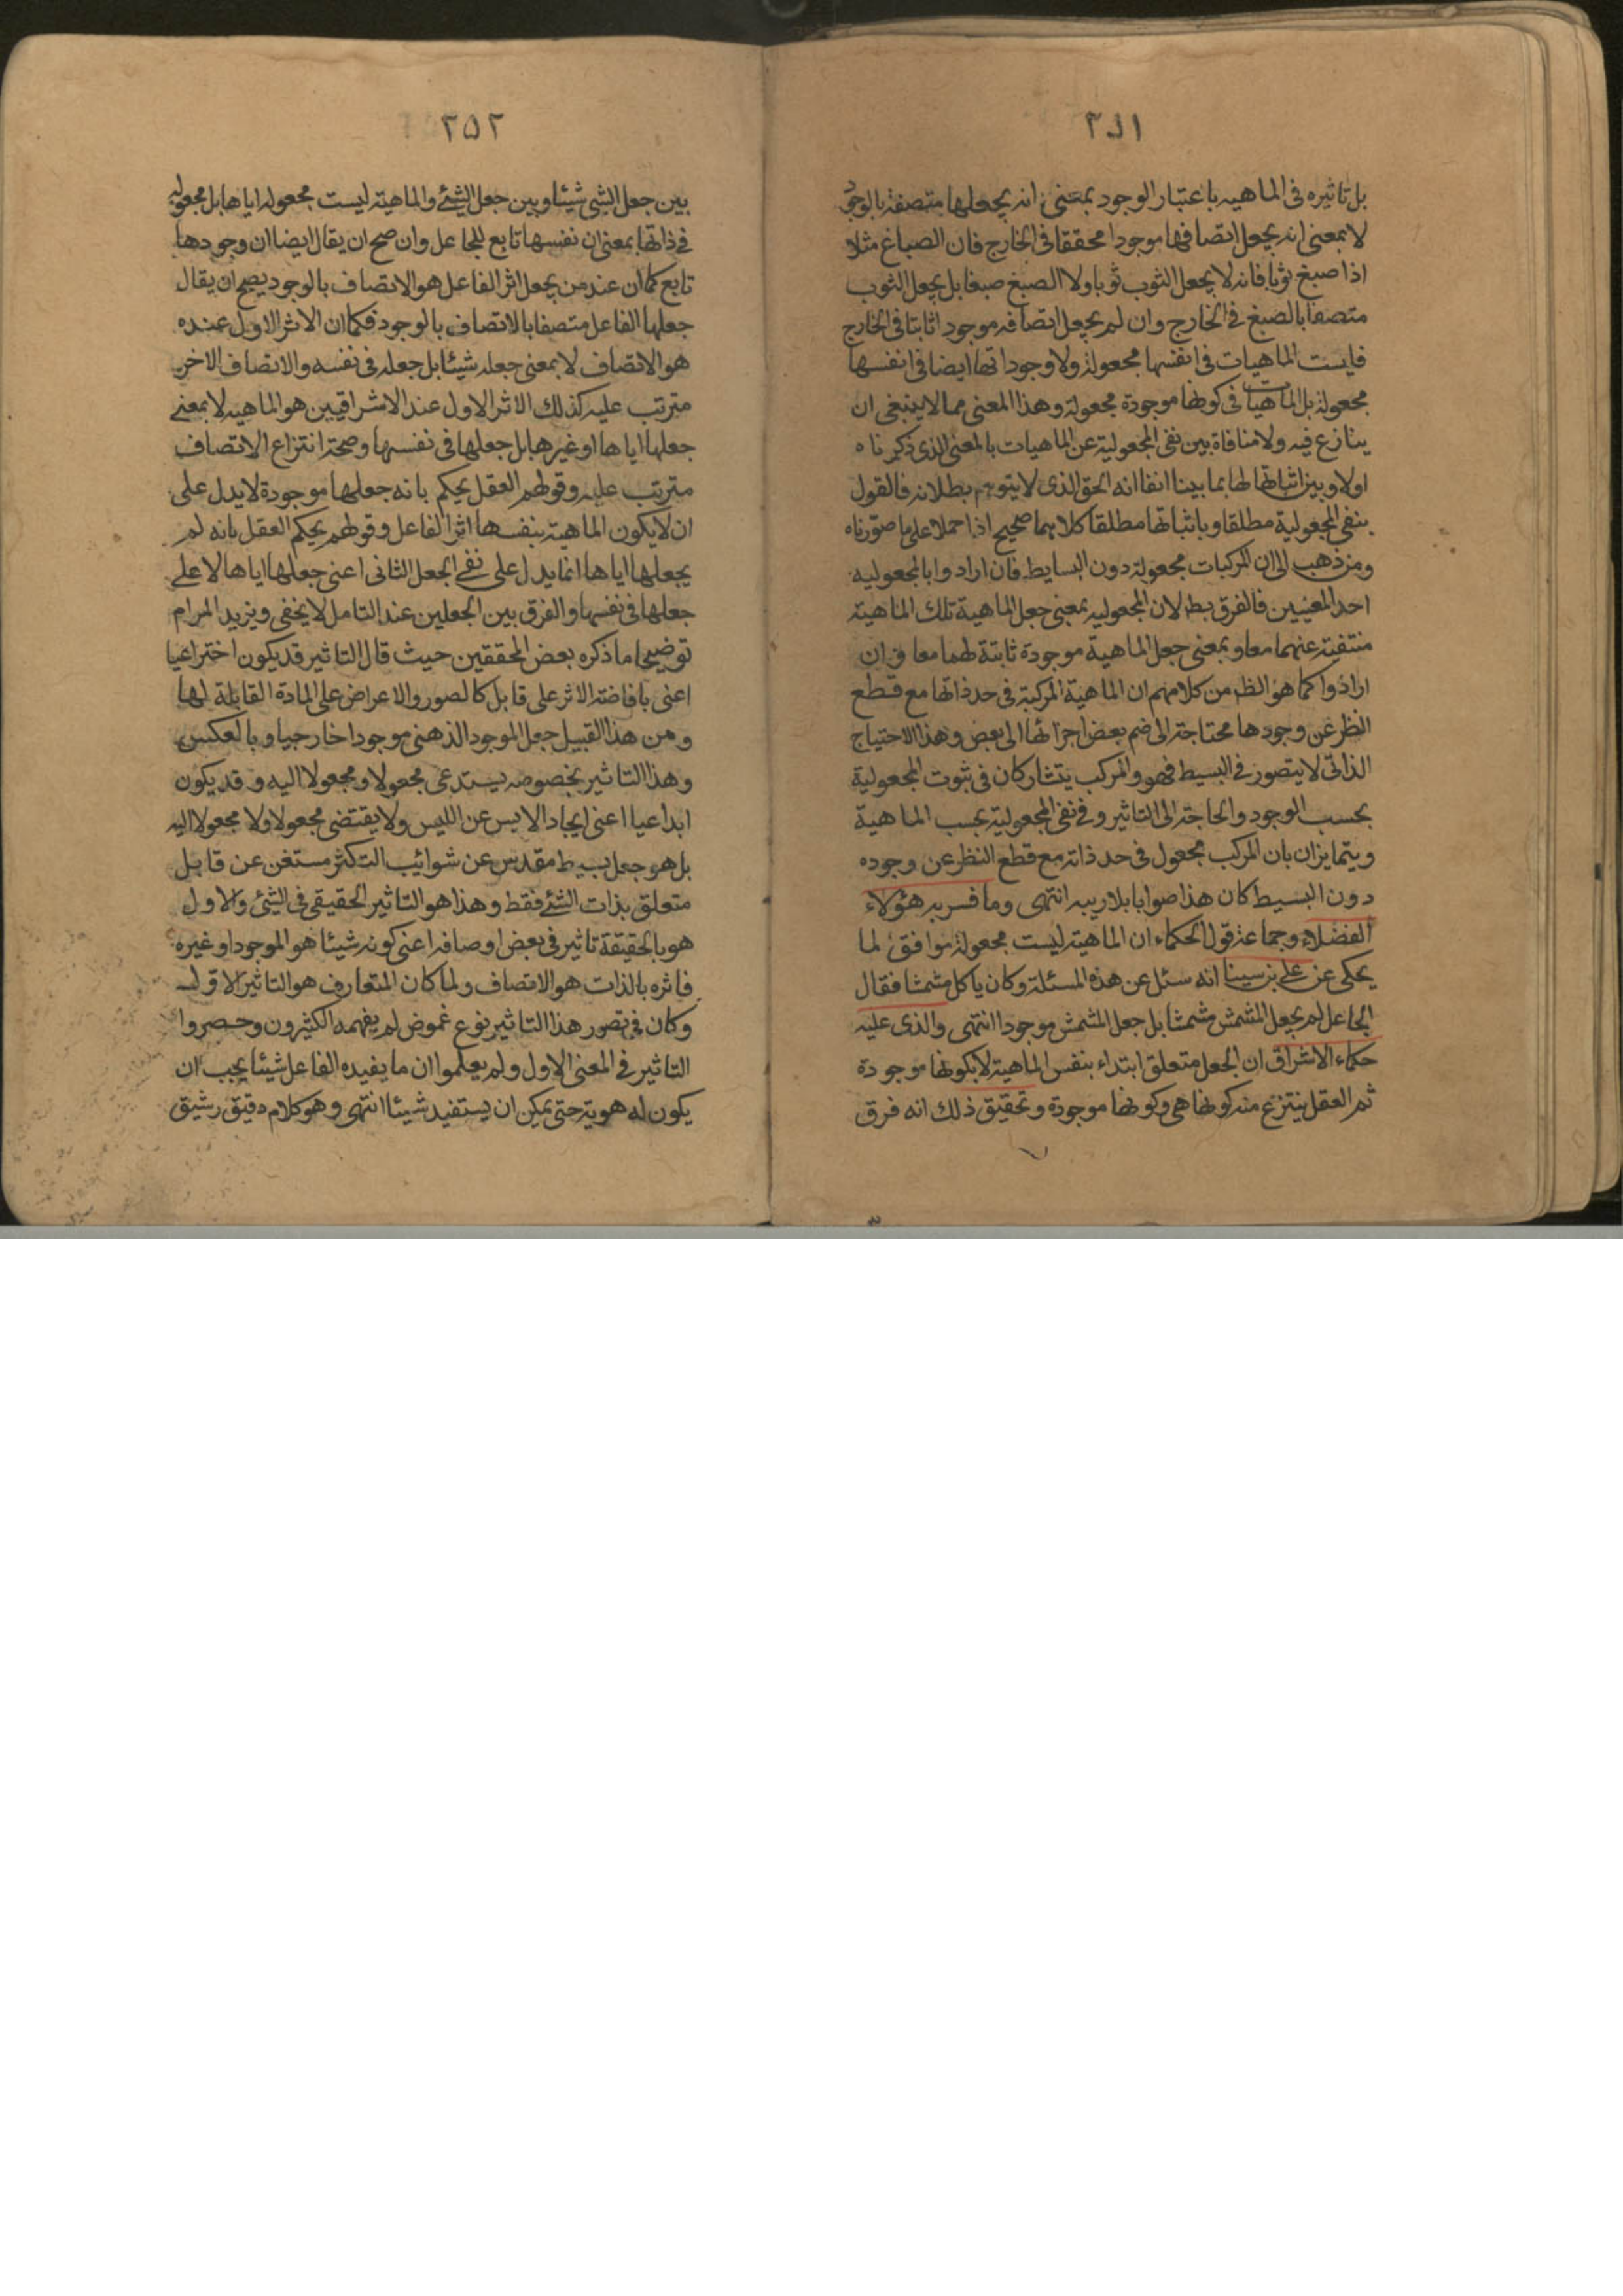 ٢٥١
بل تاثيره فى الماهيه باعتبار الوجود بمعنى انه يجعلها متصفة بالوجود
لا بمعنى انه يجعل اتصافها موجودا محققا فى الخارج فان الصباغ مثلا
اذا صبغ ثوبا فانه لا يجعل الثوب ثوبا ولا الصبغ صبغا بل يجعل الثوب
متصفا بالصبغ فى الخارج وان لم يجعل اتصافه موجودا ثابتا فى الخارج
فليست الماهيات فى انفسها مجعولة ولا وجوداتها ايضا فى انفسها
مجعولة بل الماهيات فى كونها موجودة مجعولة وهذا المعنى مما لا ينبغى ان
ينازع فيه ولا منافاة بين نفى المجعولية عن الماهيات بالمعنى الذى ذكرناه
اولا وبين اثباتها لها بما بينا انفا انه الحق الذى لا يتوهم بطلانه فالقول
بنفى المجعولية مطلقا وباثباتها مطلقا كلاهما صحيح اذا حملا على ما صورناه
ومن ذهب الى ان المركبات مجعولة دون البسايط فان ارادوا بالمجعوليه
احد المعنيين فالفرق بط لان المجعوليه بمعنى جعل الماهية تلك الماهية
منتفية عنهما معا وبمعنى جعل الماهية موجودة ثابتة لهما معا وان
ارادوا كما هو الظ من كلامهم ان الماهية المركبة فى حد ذاتها مع قطع
النظر عن وجودها محتاجة الى ضم بعض اجزائها الى بعض وهذا الاحتياج
الذاتى لا يتصور فى البسيط فهو والمركب يتشاركان فى ثبوت المجعولية
بحسب الوجود والحاجة الى التاثير وفى نفى المجعولية بحسب الماهية
ويتمايزان بان المركب مجعول فى حد ذاته مع قطع النظر عن وجوده
دون البسيط كان هذا صوابا بلا ريبه انتهى وما فسر به هؤلاء
الفضلاء وجماعة قول الحكماء ان الماهية ليست مجعولة موافق لما
يحكى عن على بن سينا انه سئل عن هذه المسئلة وكان ياكل مشمشا فقال
الجاعل لم يجعل المشمش مشمشا بل جعل المشمش موجودا انتهى والذى عليه
حكماء الاشراق ان الجعل متعلق ابتداء بنفس الماهية لا بكونها موجودة
ثم العقل ينتزع منه كونها هى وكونها موجودة وتحقيق ذلك انه فرق
٢٥٢
بين جعل الشئ شيئا وبين جعل الشئ والماهية ليست مجعولة اياها بل مجعولة
فى ذاتها بمعنى ان نفسها تابع للجاعل وان صح ان يقال ايضا ان وجودها
تابع كما ان عند من يجعل اثر الفاعل هو الاتصاف بالوجود يصح ان يقال
جعلها الفاعل متصفا بالاتصاف بالوجود فكما ان الاثر الاول عنده
هو الاتصاف لا بمعنى جعله شيئا بل جعله فى نفسه والاتصاف الاخر
مترتب عليه كذلك الاثر الاول عند الاشراقيين هو الماهية لا بمعنى
جعلها اياها او غيرها بل جعلها فى نفسها وصحة انتزاع الاتصاف
مترتب عليه وقولهم العقل يحكم بانه جعلها موجودة لا يدل على
ان لا يكون الماهية بنفسها اثر الفاعل وقولهم يحكم العقل بانه لم
يجعلها اياها انما يدل على نفى الجعل الثانى اعنى جعلها اياها لا على
جعلها فى نفسها والفرق بين الجعلين عند التامل لا يخفى ويزيد المرام
توضيحا ما ذكره بعض المحققين حيث قال التاثير قد يكون اختراعيا
اعنى بافاضة الاثر على قابل كالصور والاعراض على المادة القابلة لها
ومن هذا القبيل جعل الموجود الذهنى موجودا خارجيا وبالعكس
وهذا التاثير بخصوصه يستدعى مجعولا ومجعولا اليه وقد يكون
ابداعيا اعنى ايجاد الايس عن الليس ولا يقتضى مجعولا ولا مجعولا اليه
بل هو جعل بسيط مقدس عن شوائب التكثر مستغن عن قابل
متعلق بذات الشئ فقط وهذا هو التاثير الحقيقى فى الشئ والاول
هو بالحقيقة تاثير فى بعض اوصافه اعنى كونه شيئا هو الموجود او غيره
فاثره بالذات هو الاتصاف ولما كان المتعارف هو التاثير الاول
وكان فى تصور هذا التاثير نوع غموض لم يفهمه الكثيرون وحصروا
التاثير فى المعنى الاول ولم يعلموا ان ما يفيده الفاعل شيئا يجب ان
يكون له هوية حتى يمكن ان يستفيد شيئا انتهى وهو كلام دقيق رشيق